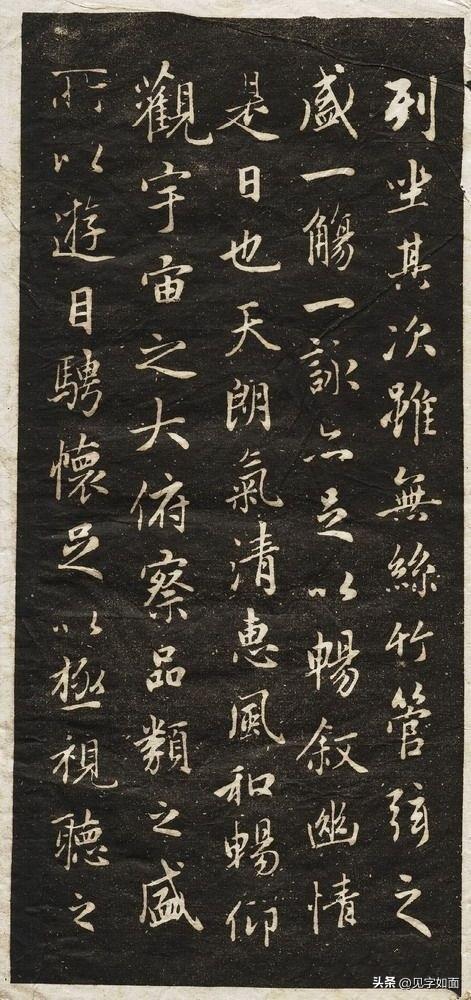 列坐其次雖無絲竹管弦之
盛一觴一詠亦足以暢叙幽情
是日也天朗氣清惠風和暢仰
觀宇宙之大俯察品類之盛
所以遊目騁懷足以極視聽之
头条@见字如面